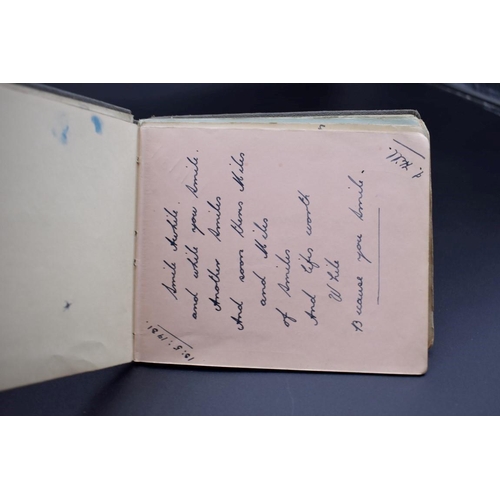 Smile Awhile.
and while you smile.
Another smiles
And soon theres Miles
and Miles
of Smiles
And lifes worth
While
Because you smile.
13:5:1931.